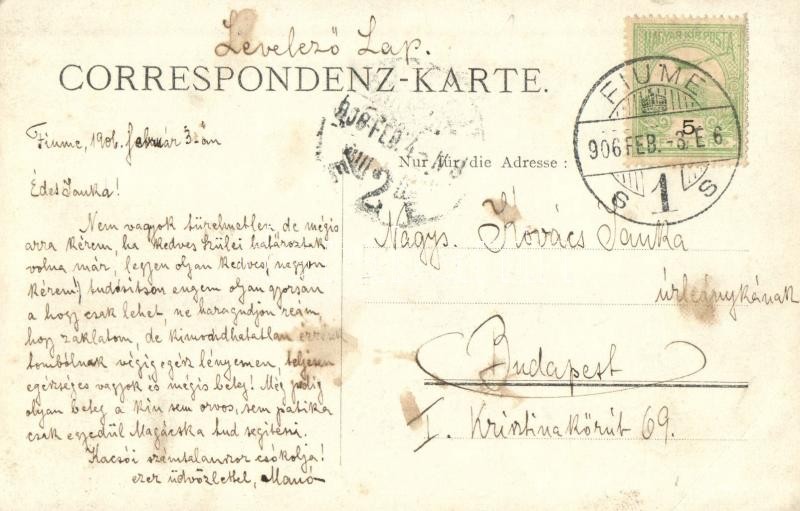 Levelező Lap.
CORRESPONDENZ-KARTE.
MAGYAR KIR. POSTA
5
FIUME
906 FEB. -3. E 6
S 1 S
906 FEB 4
2
Nur für die Adresse :
Fiume, 1906. február 3-án
Édes Janka!
Nem vagyok türelmetlen, de mégis
arra kérem, ha kedves szülei határoztak
volna már, legyen olyan kedves (nagyon
kérem!) tudósítson engem olyan gyorsan
a hogy csak lehet, ne haragudjon reám,
hogy zaklatom, de kimondhatatlan
tombólnak végig egész lényemen, teljesen
egészséges vagyok és mégis beteg! Még pedig
olyan beteg a kin sem orvos, sem patika
csak egyedül Magácska tud segíteni.
Kacsói számtalanszor csókolja!
ezer üdvözlettel, Manó
Nagys. Kovács Janka
úrleánykának
Budapest
I. Krisztina körút 69.